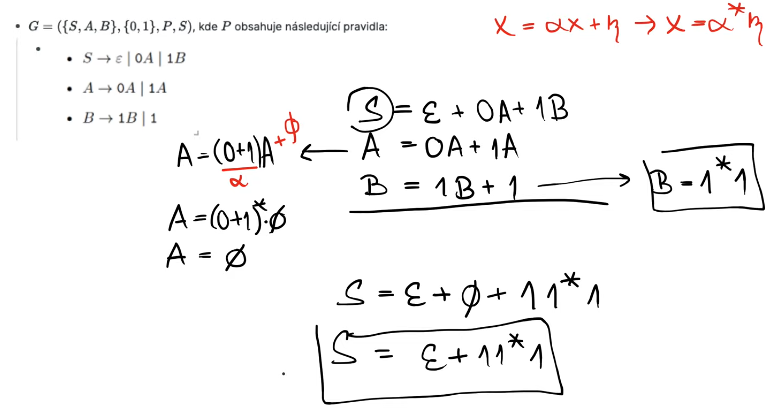 G = ({S, A, B}, {0, 1}, P, S), kde P obsahuje následující pravidla:
S → ε | 0A | 1B
A → 0A | 1A
B → 1B | 1
X = αX + η → X = α*η
S = ε + 0A + 1B
A = 0A + 1A
B = 1B + 1 → B = 1*1
A = (0+1)A + ϕ
α
A = (0+1)*·∅
A = ∅
S = ε + ϕ + 11*1
S = ε + 11*1